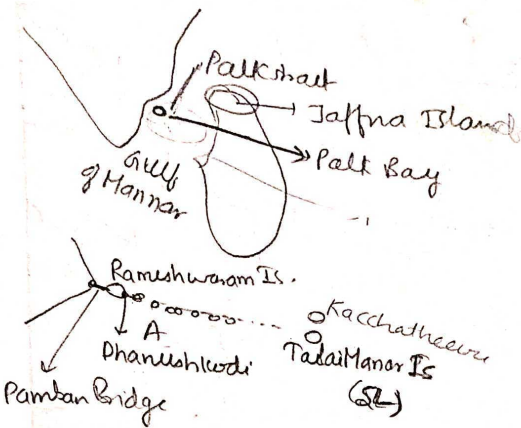 Palkstrait
Jaffna Island
Palk Bay
Gulf
of Mannar
Rameshwaram Is.
Kacchatheevu
A
Dhanushkodi
TalaiManar Is
(SL)
Pamban Bridge